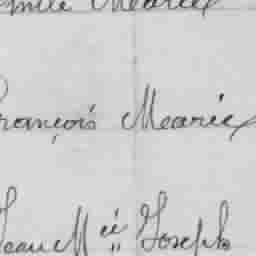 Emile Mearie
François Mearie
Jean Mie Joseph